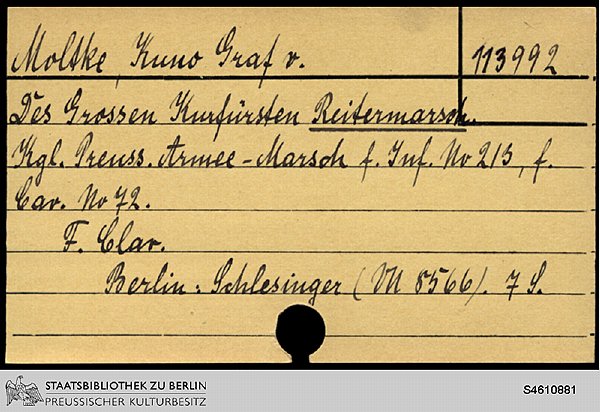 Moltke, Kuno Graf v.
113992
Des Grossen Kurfürsten Reitermarsch.
Kgl. Preuss. Armee-Marsch f. Inf. No 213, f.
Cav. No 72.
F. Clav.
Berlin: Schlesinger (VN 8566). 7 S.
STAATSBIBLIOTHEK ZU BERLIN
PREUSSISCHER KULTURBESITZ
S4610881